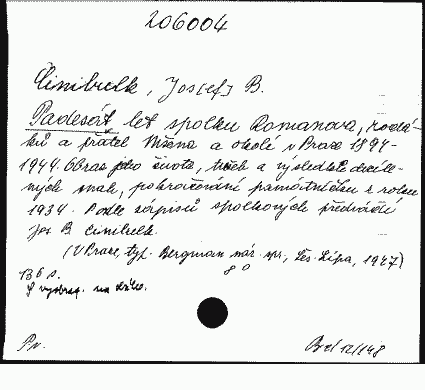 206004
Cinibulk, Jos[ef] B.
Padesát let spolku Romanova, rodá-
ků a přátel Mšena a okolí v Praze 1894-
1944. Obraz jeho života, tužeb a výsledků
ných snah, pokračování památníčku z roku
1934. Podle zápisů spolkových předvádí
Jos. B. Cinibulk.
(V Praze, typ. Bergman nár. spr., Čes. Lípa, 1947)
8°
136 s.
Pr.